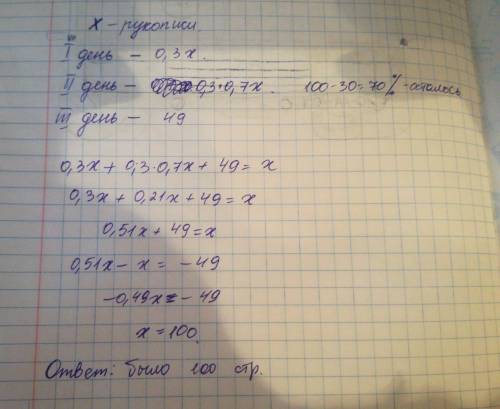 х - рукописи.
I день - 0,3х.
II день - 0,3·0,7х. 100-30=70% -осталось
III день - 49
0,3х + 0,3·0,7х + 49 = х
0,3х + 0,21х + 49 = х
0,51х + 49 = х
0,51х - х = -49
-0,49х = - 49
х = 100.
Ответ: было 100 стр.